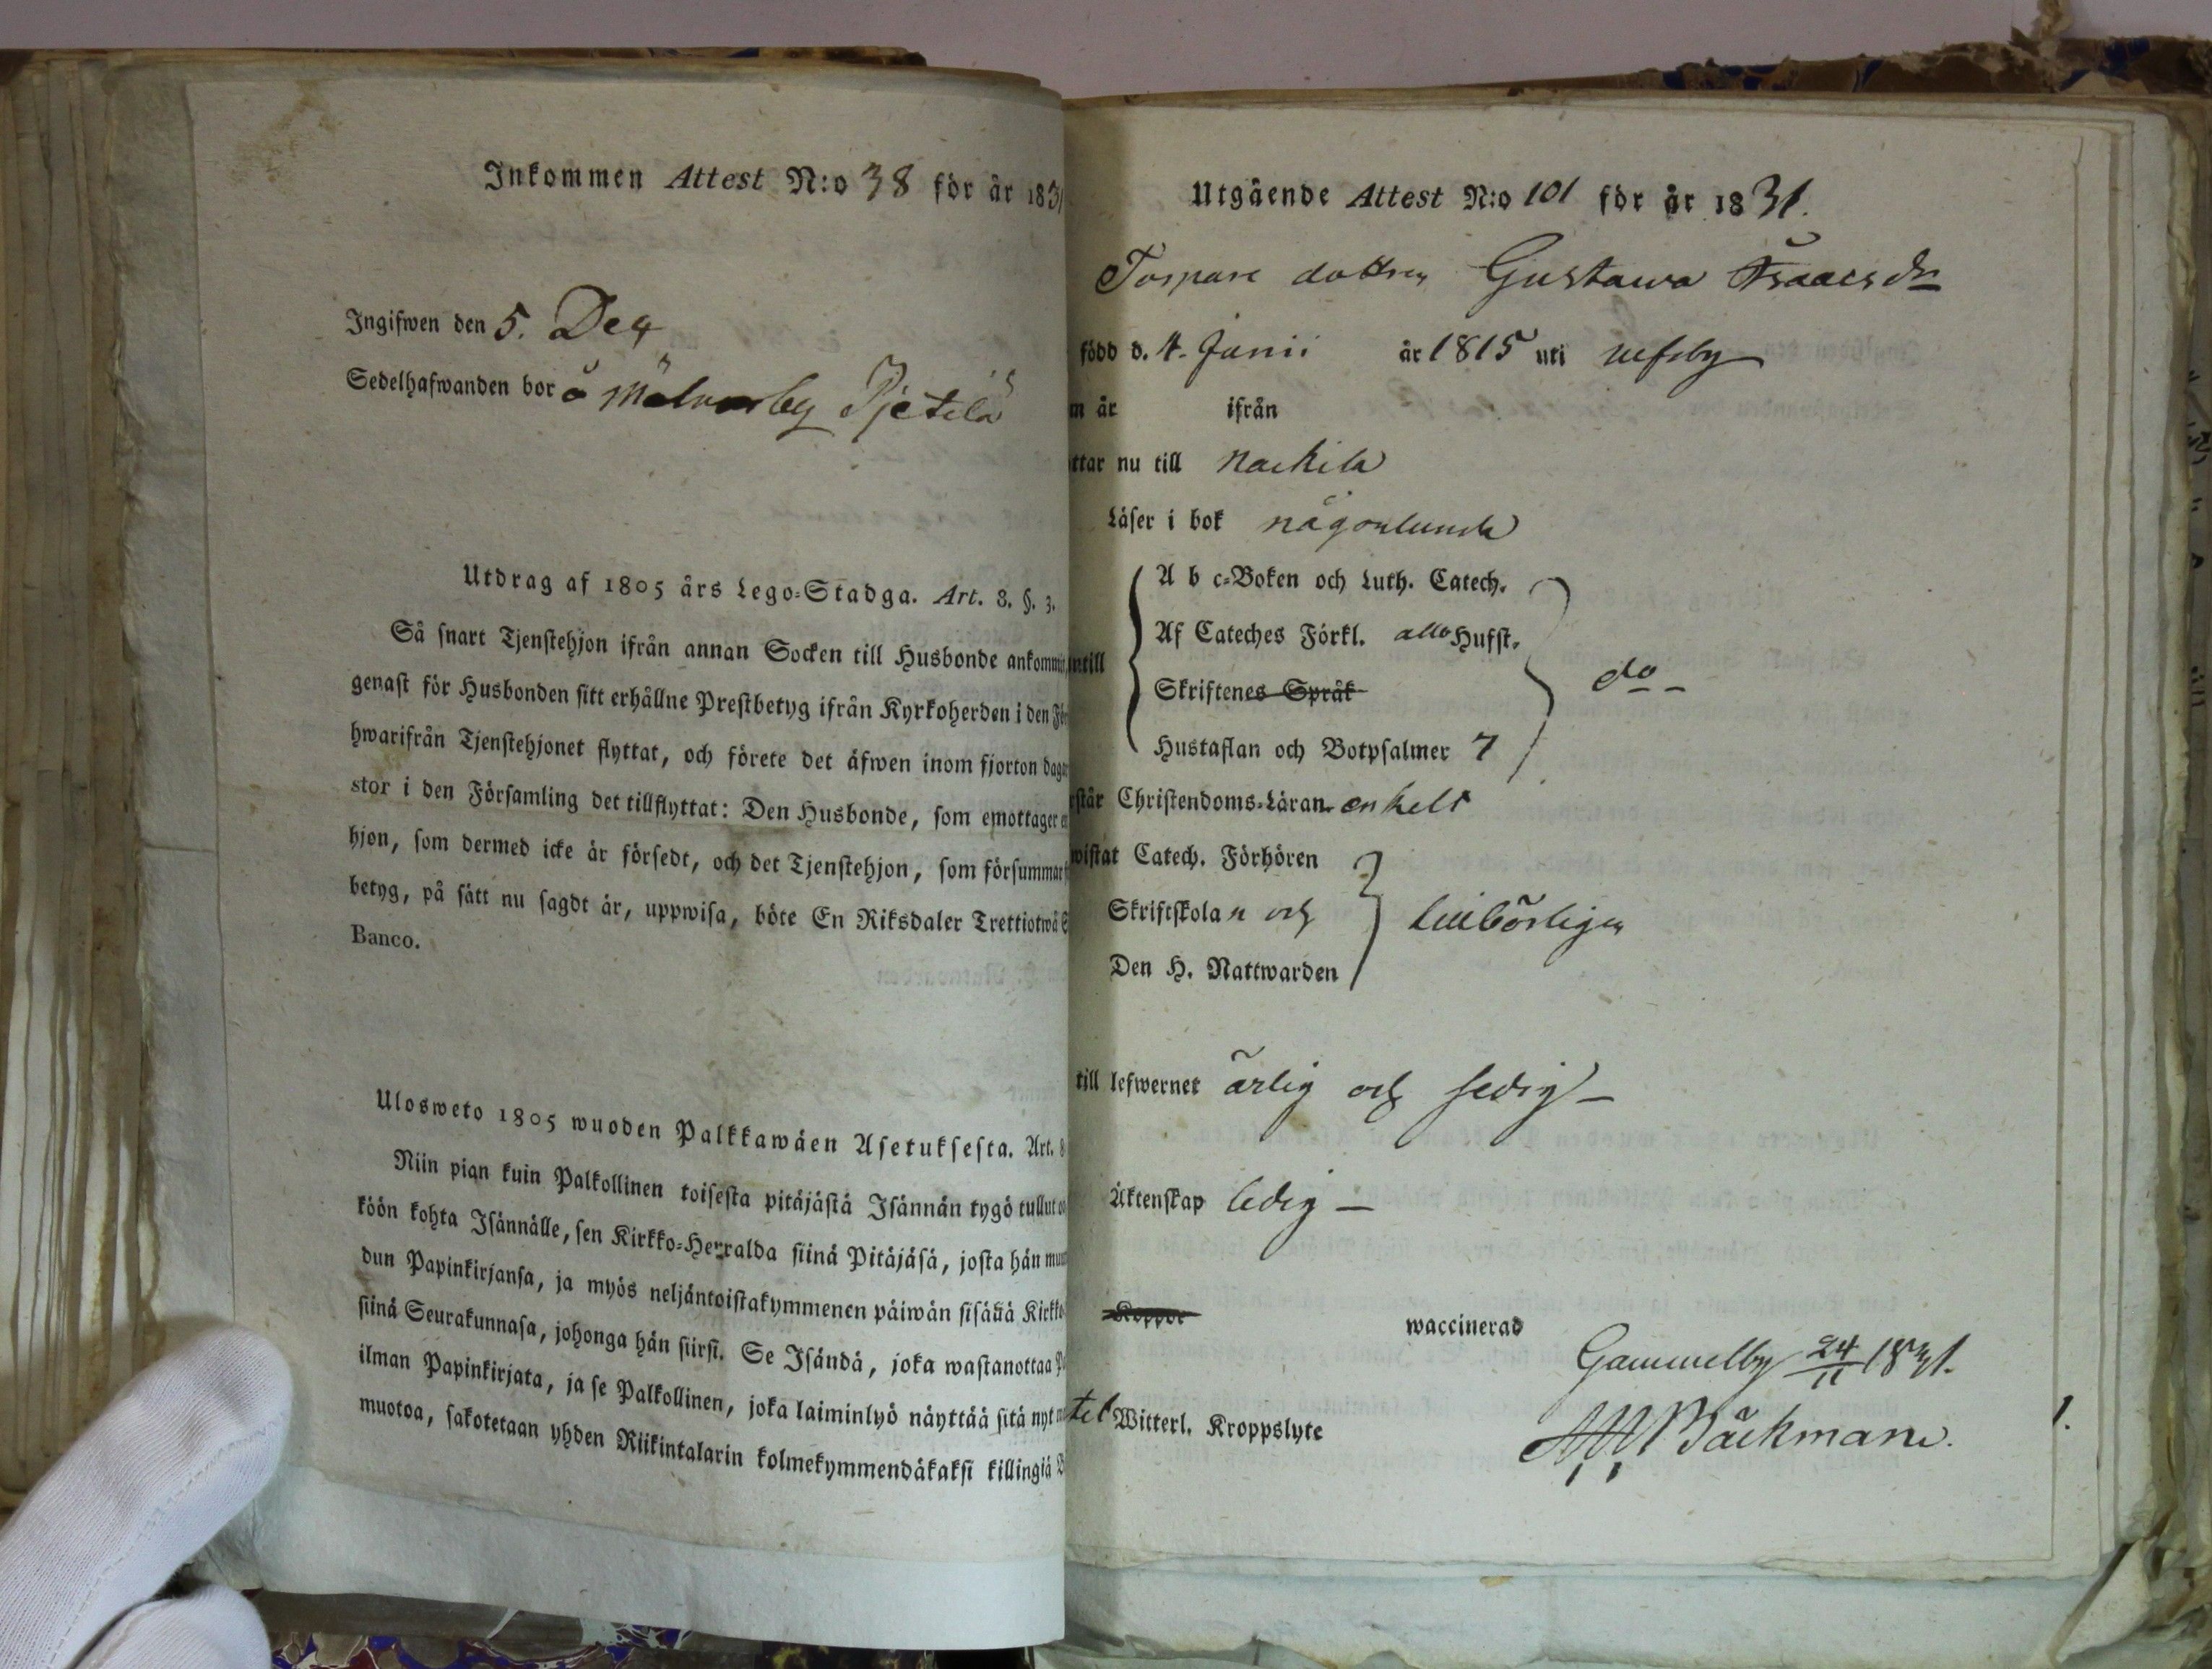 Inkommen Attest N:o 38 för år 1831
Ingifwen den 5. Dec
Sedelhafwanden bor å Mälnarby Pjetilä
Utdrag af 1805 års Lego-Stadga. Art. 8. §. 3.
Så snart Tjenstehjon ifrån annan Socken till Husbonde ankommit
genast för Husbonden sitt erhållne Prestbetyg ifrån Kyrkoherden i den För
hwarifrån Tjenstehjonet flyttat, och förete det äfwen inom fjorton dagar
stor i den Församling det tillflyttat: Den Husbonde, som emottager
hjon, som dermed icke är försedt, och det Tjenstehjon, som försummar
betyg, på sätt nu sagdt är, uppwisa, böte En Riksdaler Trettiotwå S
Banco.
Ulosweto 1805 wuoden Palkkawäen Asetuksesta. Art. 8
Niin pian kuin Palkollinen toisesta pitäjästä Isännän tygö tullut
köön kohta Isännälle, sen Kirkko-Herralda siinä Pitäjäsä, josta hän mu
dun Papinkirjansa, ja myös neljäntoistakymmenen päiwän sisällä Kirkko
siinä Seurakunnasa, johonga hän siirsi. Se Isändä, joka wastanottaa P
ilman Papinkirjata, ja se Palkollinen, joka laiminlyö näyttää sitä nyt
muotoa, sakotetaan yhden Riikintalarin kolmekymmendäkaksi killingiä B
Utgående Attest N:o 101 för år 1831.
Torpare dottren Gustawa Isaacsdr
född d. 4. Junii år 1815 uti Ulfsby
m år ifrån
ttar nu till Nackila
Läser i bok någonlunda
A b c-Boken och Luth. Catech.
Af Cateches Förkl. allt Husst.
ntill
Skriftenes Språk do
Hustaflan och Botpsalmer 7
rstår Christendoms-Läran enkelt
wistat Catech. Förhören
Skriftskolan och tillbörligen
Den H. Nattwarden
till lefwernet ärlig och sedig
Äktenskap ledig
Koppor waccinerad
Gammelby 24/11 1831.
tel Witterl. Kroppslyte
Bäckman.
1.